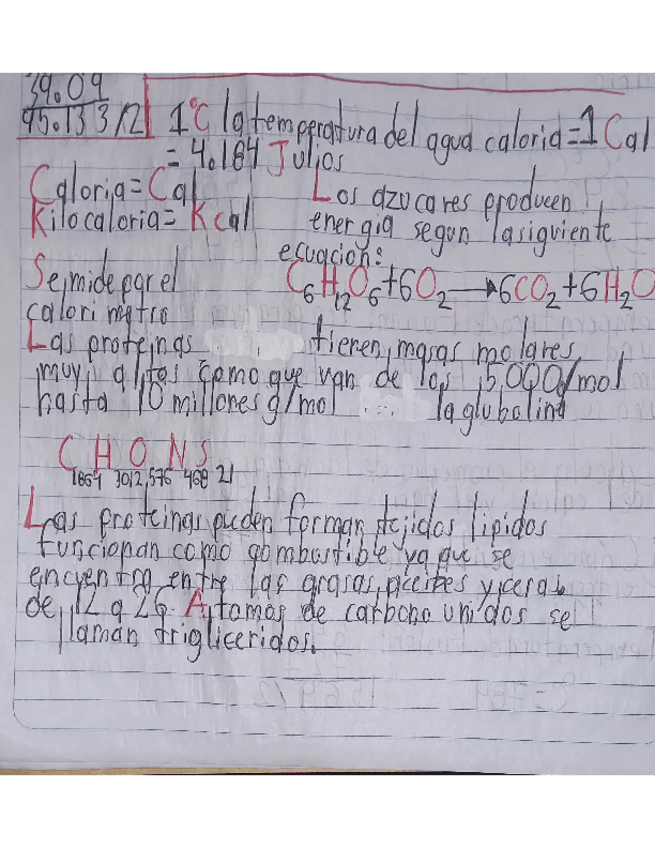 39.09
95.133/12
1°C la temperatura del agua caloria=1 Cal
= 4.184 Julios
Caloria= Cal
Kilocaloria= Kcal
Los azucares producen
energia segun la siguiente
ecuación:
C6H12O6+6O2→6CO2+6H2O
Se mide par el
calorimetro
Las proteinas tienen, masas molares
muy altas como que van de los 15,000/mol
hasta 10 millones g/mol ... la globulina
C H O N S
1864 3012,576 468 21
Las proteinas pueden forman tejidos lipidos
funcionan como combustible ya que se
encuentra entre las grasas, aceites y ceras
de 12 a 26 Atomos de carbono unidos se
llaman trigliceridos.